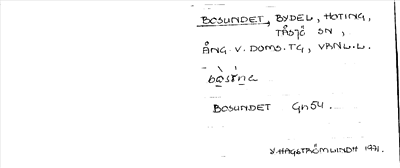 BOSUNDET, BYDEL, HOTING,
TÅSJÖ SN,
ÅNG. V. DOMS. TG, VRNL.L.
BOSUNDET Gn54.
V. HAGSTRÖM LINDH 1971.